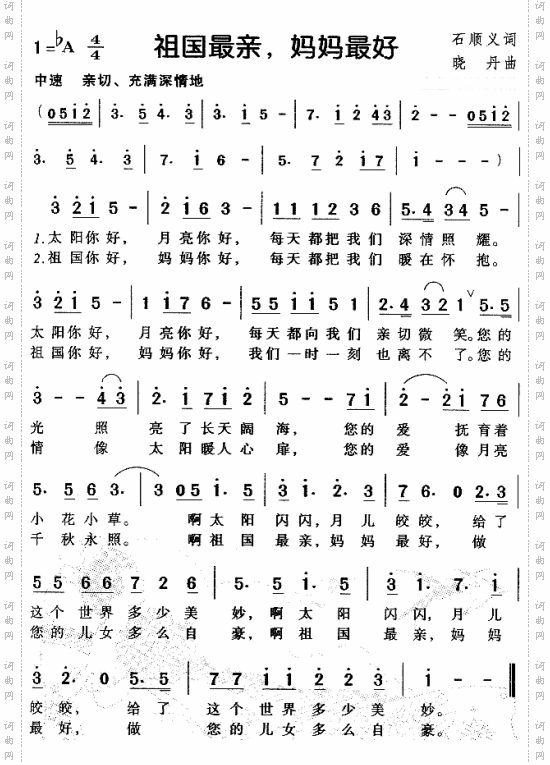 祖国最亲，妈妈最好
1=♭A 4/4
石顺义词
晓 丹曲
中速 亲切、充满深情地
(0512 3. 5 4. 3 3. 1 5 - 7. 1 2 43 2 - - 0512
3. 5 4. 3 7. 1 6 - 5. 7 2 17 1 - - -)
3 21 5 - 2 16 3 - 11 11 2 3 6 5. 4 34 5 -
1.太 阳你 好， 月 亮你 好， 每天 都把 我 们 深 情 照 耀。
2.祖 国你 好， 妈 妈你 好， 每天 都把 我 们 暖 在 怀 抱。
3 21 5 - 1 17 6 - 55 11 5 1 2. 4 32 1 5. 5
太 阳你 好， 月 亮你 好， 每天 都向 我 们 亲 切 微 笑。您 的
祖 国你 好， 妈 妈你 好， 我们 一时 一 刻 也 离 不 了。您 的
3 - - 43 2. 1 71 2 5 - - 71 2 - 21 76
光 照 亮 了 长天 阔 海， 您的 爱 抚 育着
情 像 太 阳 暖人 心 扉， 您的 爱 像 月亮
5. 5 6 3. 3 05 1. 5 3. 3 1. 5 7 6. 0 2. 3
小 花 小 草。 啊 太 阳 闪 闪，月 儿 皎 皎， 给 了
千 秋 永 照。 啊 祖 国 最 亲，妈 妈 最 好， 做
55 66 7 2 6 5. 5 5 1. 5 3 1. 7. 1
这个 世界 多 少 美 妙，啊 太 阳 闪 闪，月 儿
您的 儿女 多 么 自 豪，啊 祖 国 最 亲，妈 妈
3 2. 0 5. 5 77 11 2 2 2 1 - -
皎 皎， 给 了 这个 世界 多 少 美 妙。
最 好， 做 您的 儿女 多 么 自 豪。
词曲网